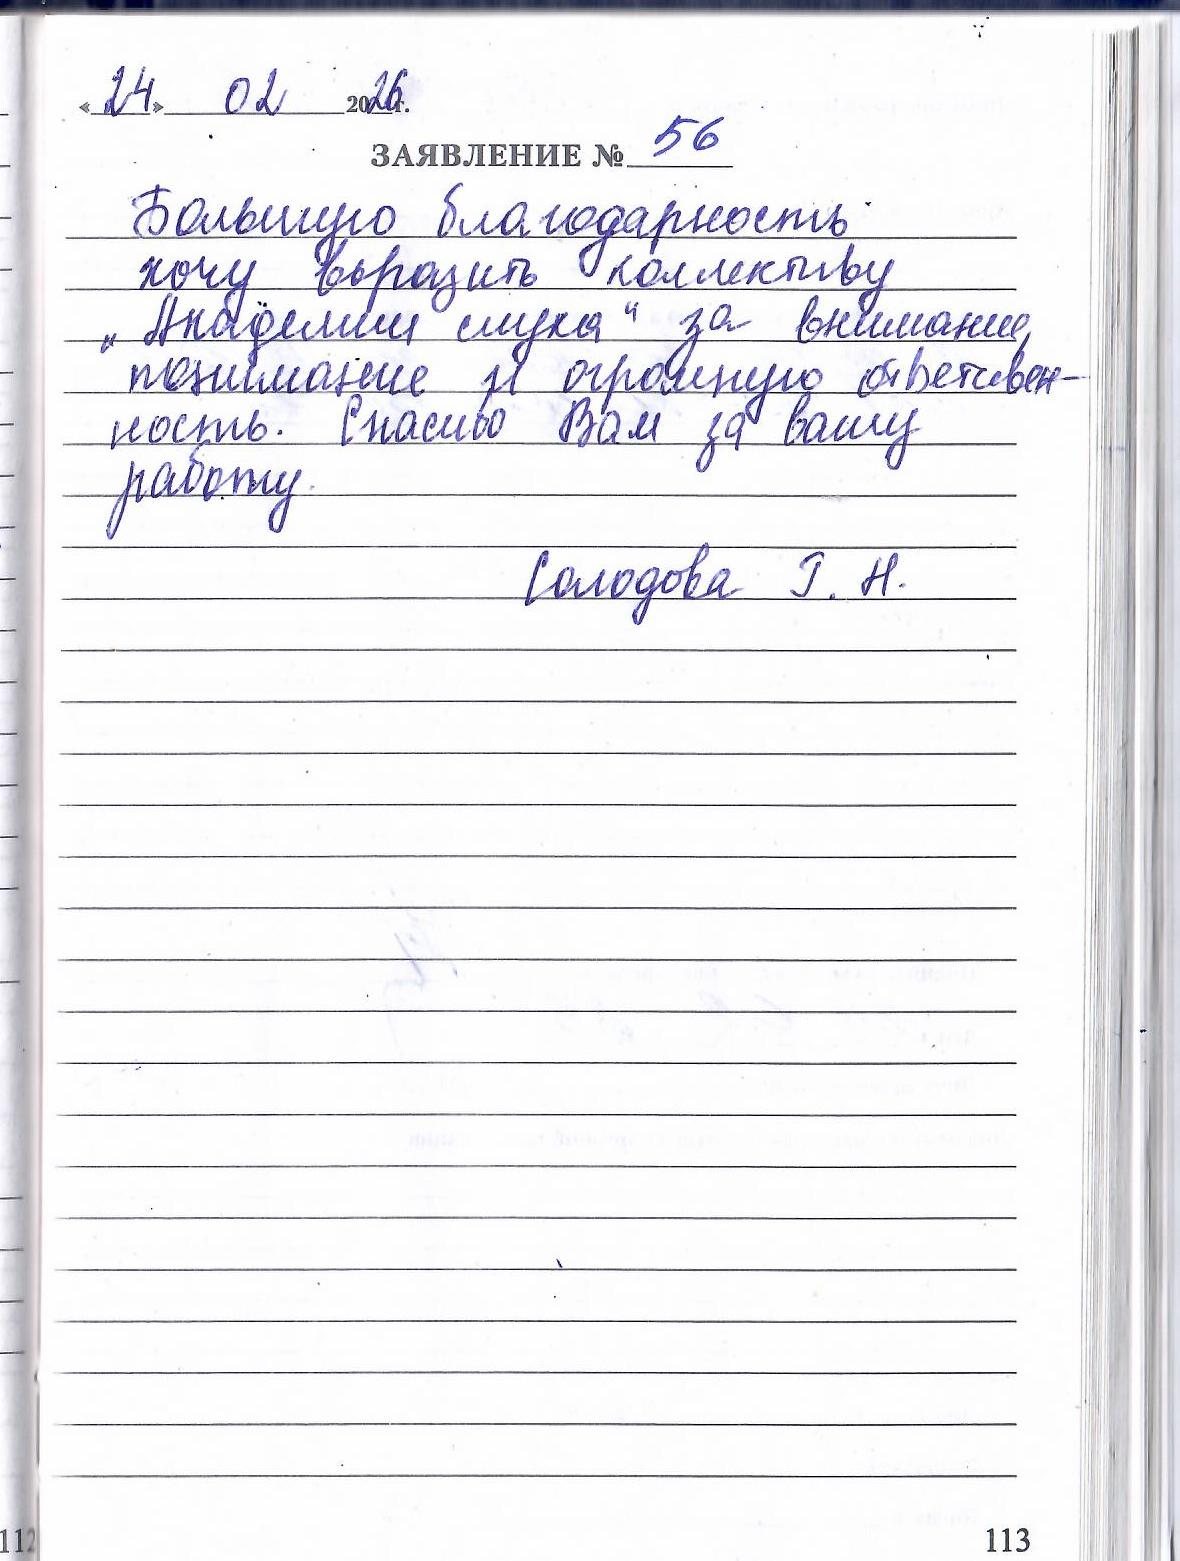 «24» 02 2026г.
ЗАЯВЛЕНИЕ № 56
Большую благодарность
хочу выразить коллективу
„Академии слуха“ за внимание,
понимание и огромную ответствен-
ность. Спасибо Вам за вашу
работу.
Солодова Г. Н.
112
113